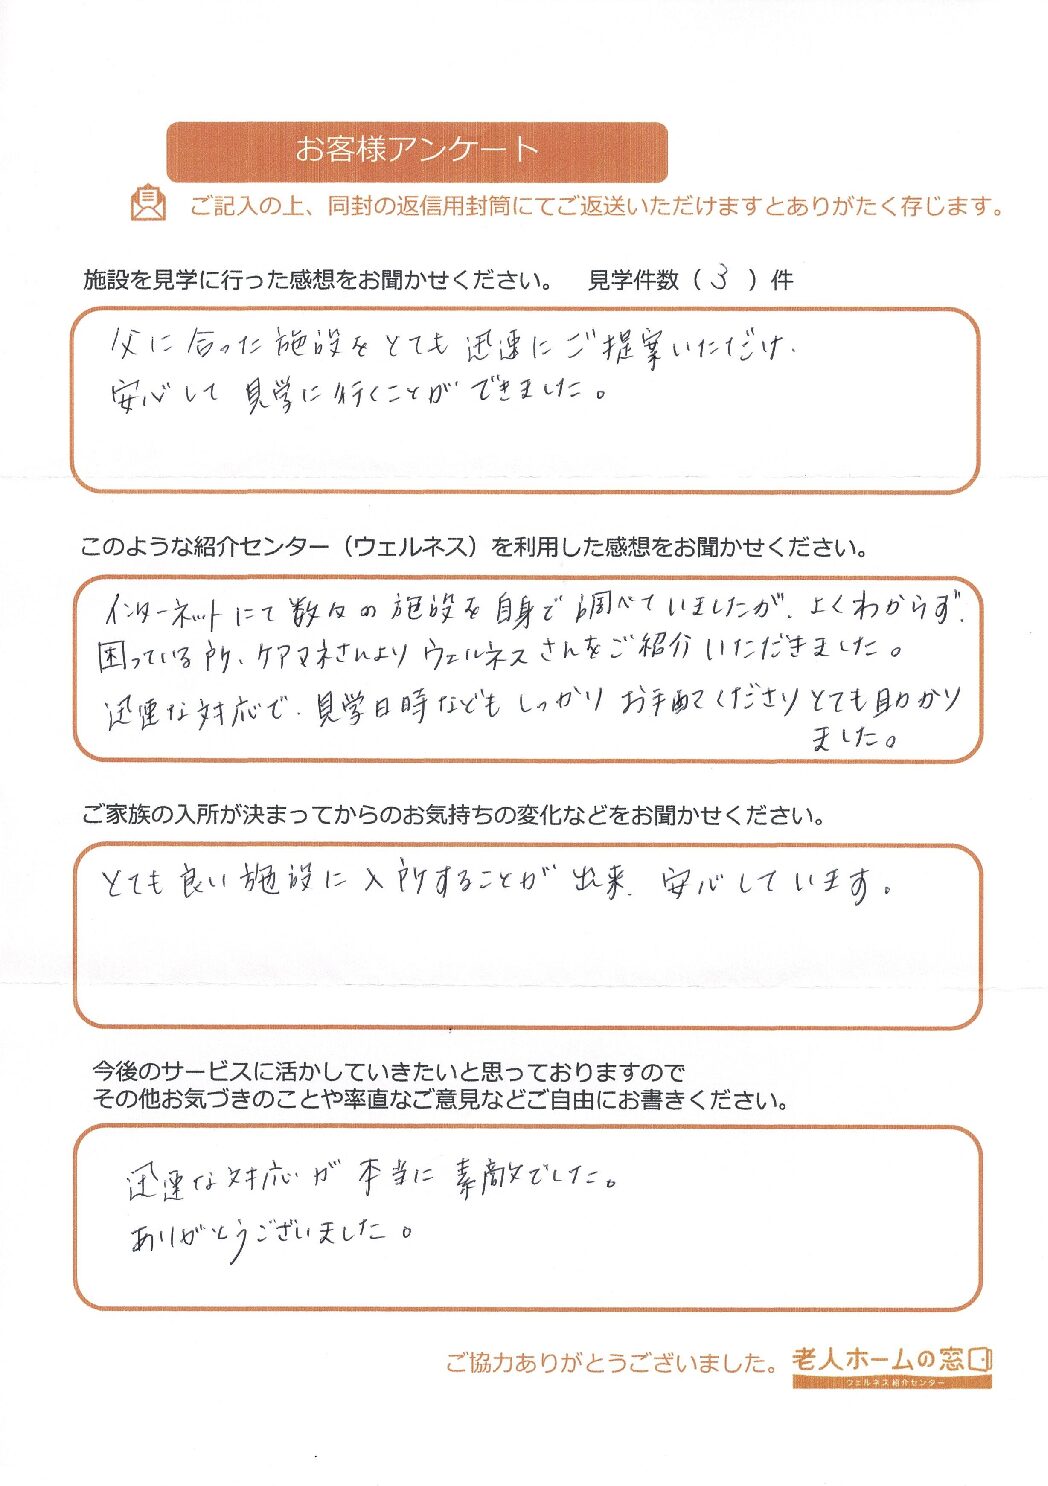 お客様アンケート
ご記入の上、同封の返信用封筒にてご返送いただけますとありがたく存じます。
施設を見学に行った感想をお聞かせください。 見学件数（ 3 ）件
父に合った施設をとても迅速にご提案いただけ、
安心して見学に行くことができました。
このような紹介センター（ウェルネス）を利用した感想をお聞かせください。
インターネットにて数々の施設を自身で調べていましたが、よくわからず、
困っている所、ケアマネさんよりウェルネスさんをご紹介いただきました。
迅速な対応で、見学日時などもしっかりお手配くださりとても助かり
ました。
ご家族の入所が決まってからのお気持ちの変化などをお聞かせください。
とても良い施設に入所することが出来、安心しています。
今後のサービスに活かしていきたいと思っておりますので
その他お気づきのことや率直なご意見などご自由にお書きください。
迅速な対応が本当に素敵でした。
ありがとうございました。
ご協力ありがとうございました。 老人ホームの窓口
ウェルネス紹介センター